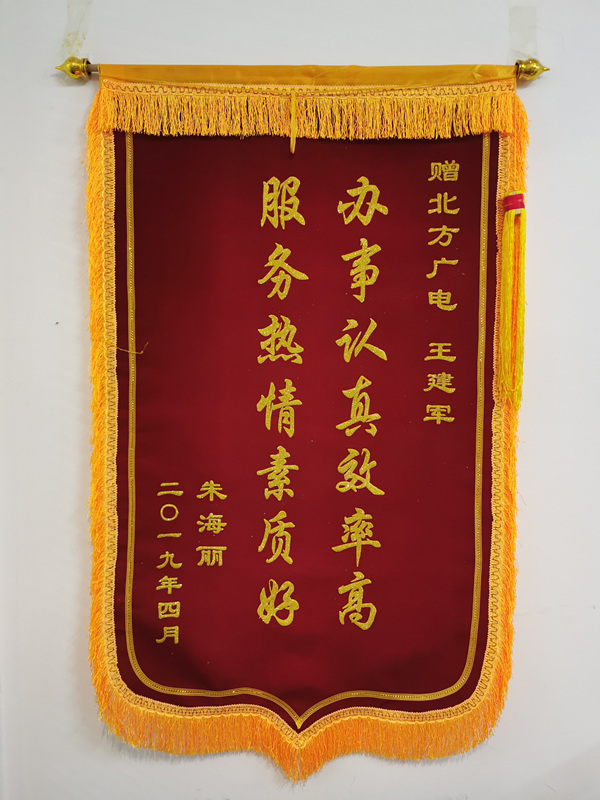 赠北方广电 王建军
办事认真效率高
服务热情素质好
朱海丽
二〇一九年四月